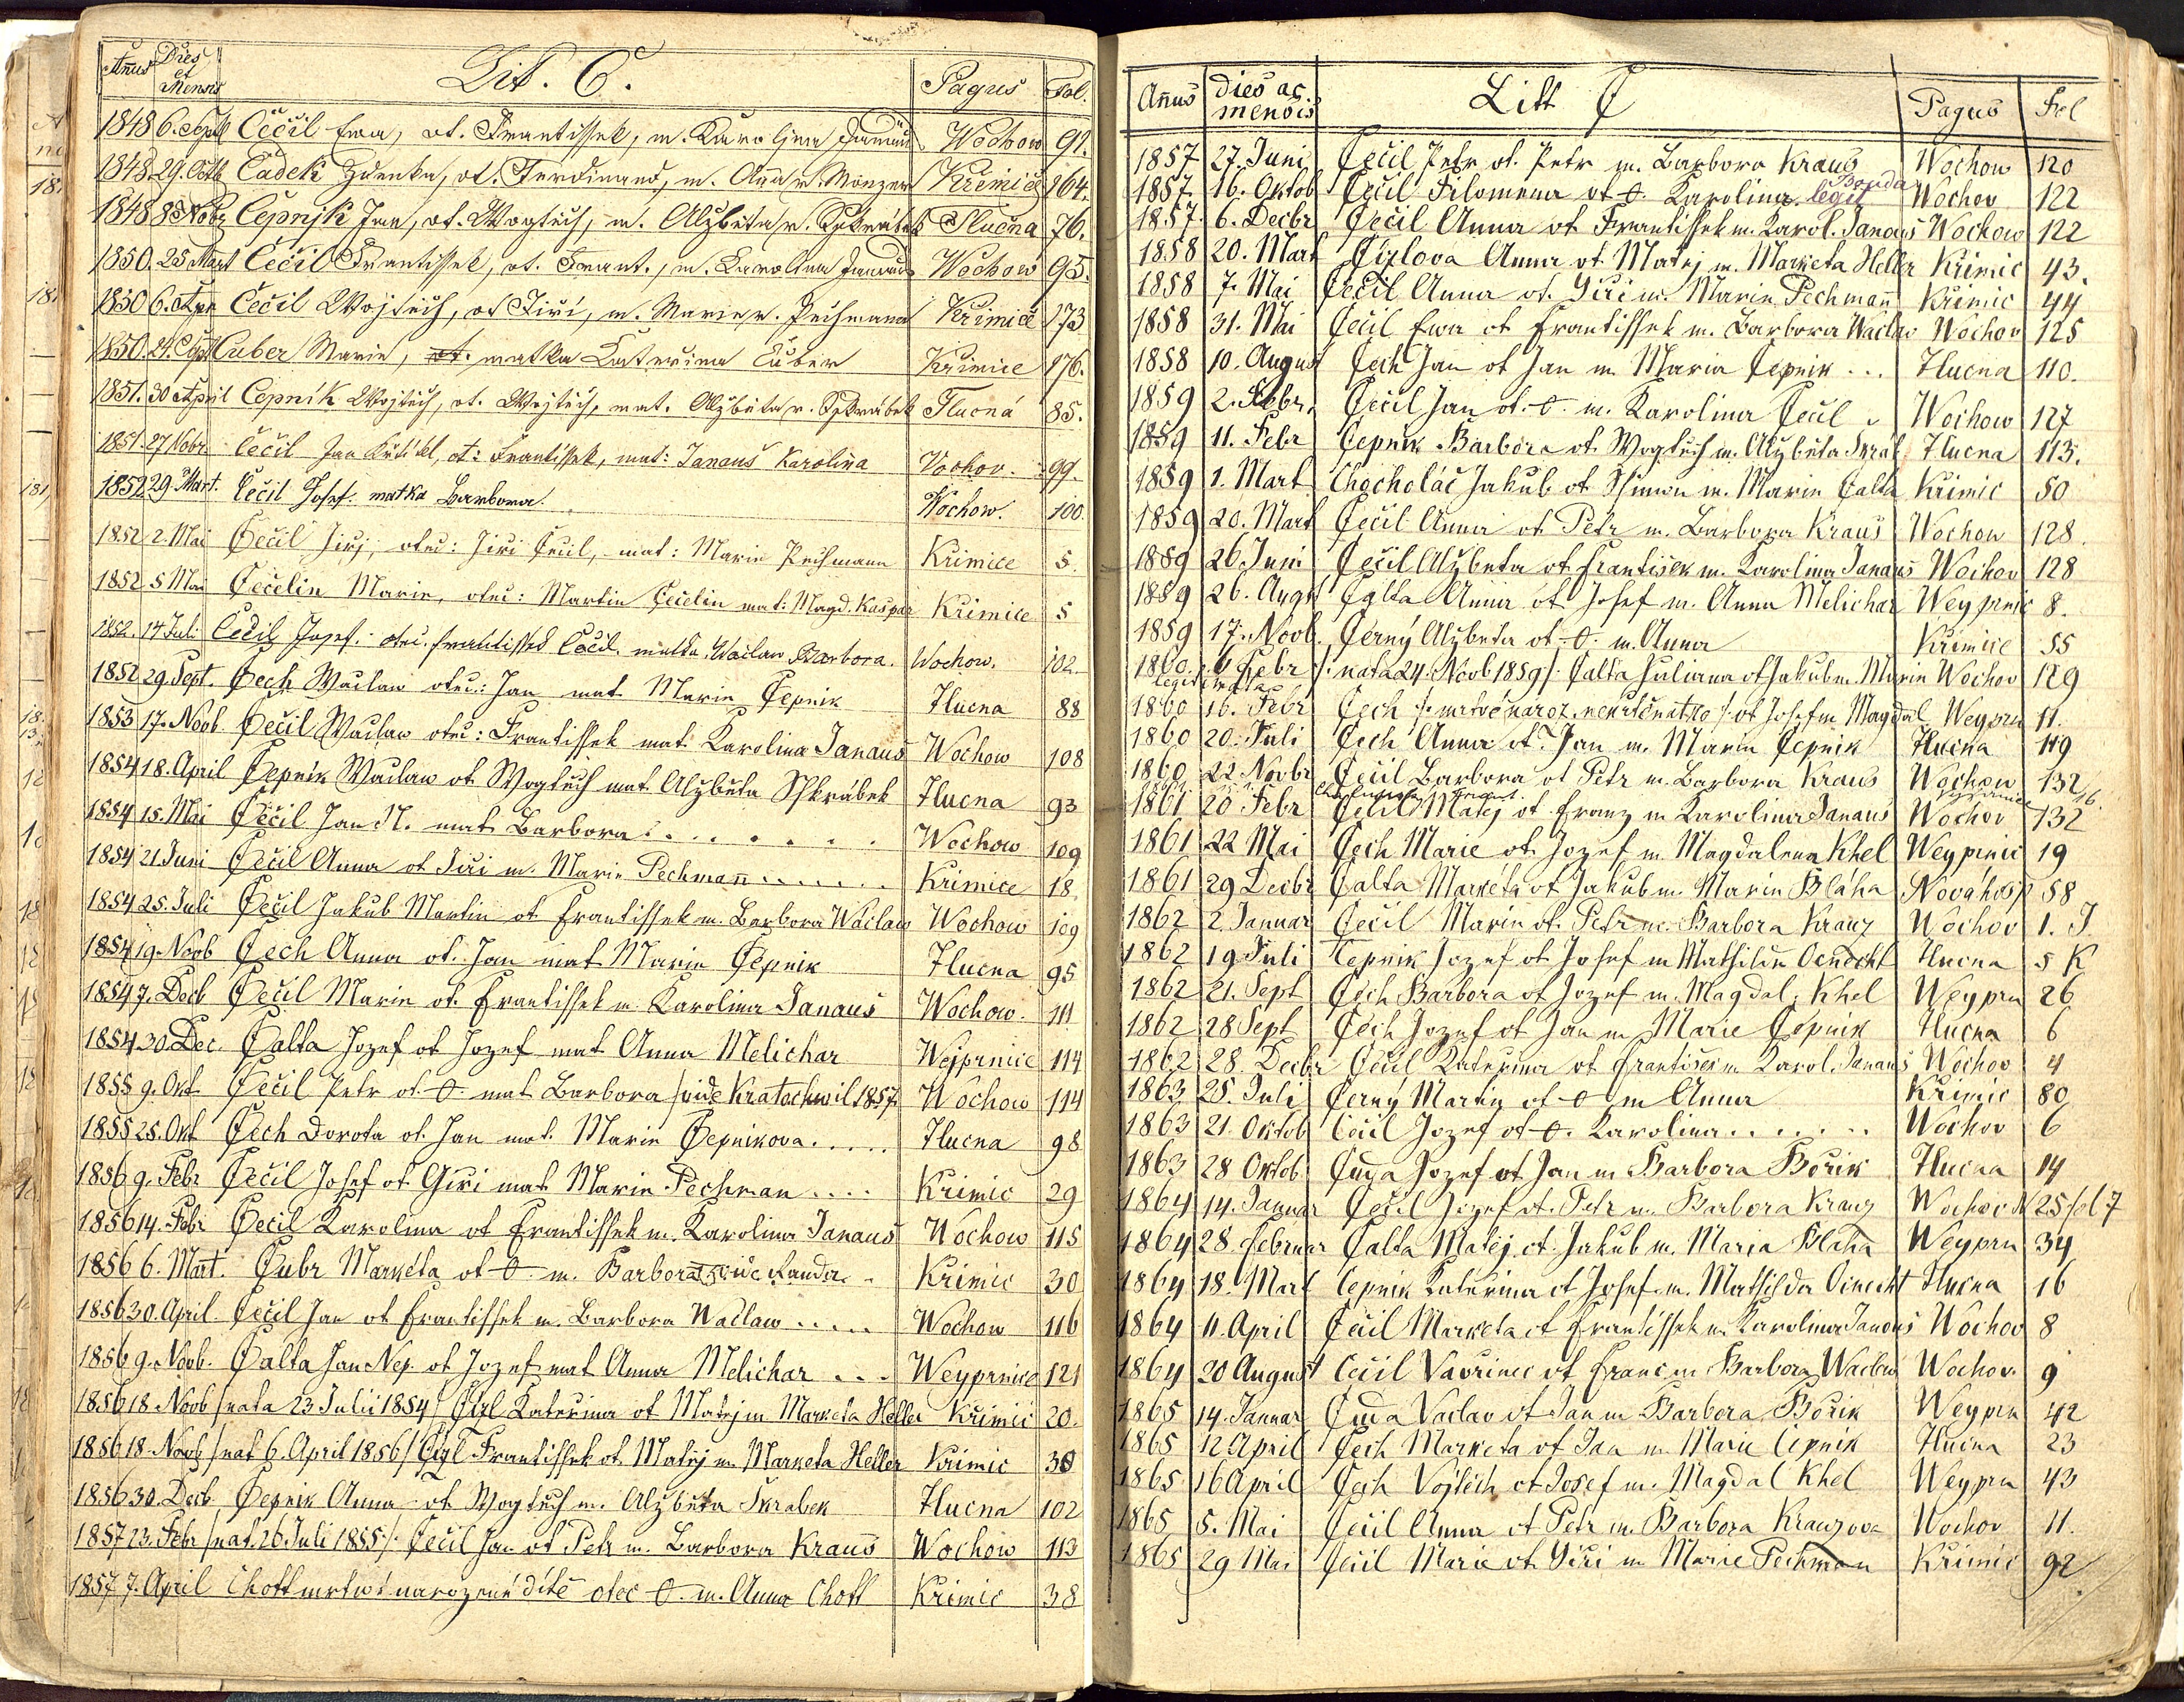 Añus Dies et Mensis Lit. C. Pagus Fol.
1848 6. Sept Čečil Ewa, ot. Frantissek, m. Karolina Janaus Wochow 91.
1848 29. Octb Čadek Zdenka, ot. Ferdinand, m. Anna r. Münzer Křimice 164.
1848 8 Nobr Čepnjk Jan, ot. Wogtěch, m. Alzběta r. Sskrabek Tlučna 76.
1850. 25 Mart Čečil Frantissek, ot. Frant., m. Karolina Janaus Wochow 95.
1850 6. Apr Čečil Wojtěch, ot Jiří, m. Marie r. Pechmann Křimice 173
1850. 21. Sept Čuber Marie, ot. matka Kateřina Čuber Křimice 176.
1851. 30 April Čepník Wojtěch, ot. Wojtěch, mat. Alzběta r. Sskrábek Tlučná 85.
1851. 27 Nobr Čečil Jan Křtitel, ot: Frantissek, mat: Janauš Karolina Vochov. 99.
1852 29. Mart. Čečil Josef. matka Barbora. Wochow. 100.
1852 2. Mai Čečil Jiřj, otec: Jiri Čecil, mat: Marie Pechmann Křimice 5.
1852 5 Mai Čečelin Marie, otec: Martin Čečelin mat: Magd. Kaspar Křimice 5
1852. 14 Juli Čečil Josef. otec. Frantissek Čečil. matka. Waclaw Barbora. Wochow. 102
1852 29. Sept. Čech Waclaw otec: Jan mat Marie Čepnik Tlucna 88
1853 17. Noob. Čečil Waclaw otec: Frantissek mat Karolina Janaus Wochow 108
1854 18. April Čepnik Waclaw ot Wogtech mat Alzbeta Schkrábek Tlucna 93
1854 15. Mai Čečil Jan N. mat Barbora. . . . . . . Wochow 109
1854 21 Juni Čečil Anna ot Jiri m. Marie Pechmañ . . . . . . Krimice 18.
1854 25. Juli Čečil Jakub Martin ot Frantissek m. Barbora Waclaw Wochow 109
1854 19. Noob Čech Anna ot. Jan mat Marie Čepnik Tlucna 95
1854 7. Decb Čečil Marie ot. Frantissek m Karolina Janaus Wochow. 111
1854 30 Dec. Čalta Jozef ot Jozef mat Anna Melichar Wejprnice 114
1855 9. Okt Čečil Petr ot. O mat Barbora /vide Kratochwil 1857. Wochow 114
1855 25. Okt Čech Dorota ot. Jan mat. Marie Čepnikova. . . . . Tlucna 98
1856 9. Febr Čečil Josef ot Giri mat Marie Pechman . . . . Krimic 29
1856 14. Febr Čecil Karolina ot Frantissek m. Karolina Janaus Wochow 115
1856 6. Mart. Čubr Markéta ot O m. Barbora Krimic 30
1856 30. April. Čečil Jan ot Frantissek m. Barbora Waclaw . . . . . Wochow 116
1856 9. Noob. Čalta Jan Nep. ot Jozef mat Anna Melichar . . . Weyprnice 121
1856 18 Noob /nata 23 Julii 1854/ Čizl Katerina ot Matej m Marketa Heller Krimic 20.
1856 18. Noob /nat 6. April 1856/ Čizl Frantissek ot Matěj m Marketa Heller Krimic 30
1856 30. Decb Čepnik Anna ot Wogtech m. Alzbeta Skrabek Tlucna 102
1857 23. Febr /nat. 26 Juli 1855/. Čečil Jan ot Petr m. Barbora Kraus Wochow 113
1857 7. April Chott mrtwě narozené dítě otec O. m. Anna Chott Krimic 38
Añus dies ac mensis Litt Č Pagus Fol
1857 27. Juni Čečil Petr ot. Petr m. Barbora Kraus Wochow 120
1857 16. Oktob Čecil Filomena ot O. Karolina. legit Bouda Wochov 122
1857. 6. Decbr Čečil Anna ot Frantissek m. Karol. Janaus Wochow 122
1858 20. Mart Čizlova Anna ot Matej m. Marketa Heller Krimic 43.
1858 7. Mai Čečil Anna ot. Giri m. Marie Pechmañ Krimic 44
1858 31. Mai Čečil Ewa ot Frantissek m. Barbora Waclaw Wochov 125
1858 10. August Čech Jan ot Jan m Maria Čepnik . . . Tlucna 110.
1859 2. Febr. Čečil Jan ot. O. m. Karolina Čecil Wochow 127
1859 11. Febr Čepnik Barbora ot Wogtech m. Alzbeta Skrab Tlucna 113.
1859 1. Mart Chocholáč Jakub ot Schimon m. Marie Čalta Krimic 50
1859 20. Mart Čečil Anna ot Petr m. Barbora Kraus Wochow 128.
1859 26 Juni Čečil Alzbeta ot Frantisek m. Karolina Janaus Wochov 128
1859 26. Augst Čalta Anna ot Josef m. Anna Melichar Weyprnic 8.
1859 17. Noob. Černý Alzbeta ot O. m. Anna Křimice 55
1860 4 Febr /: nata 24. Noob 1859/. Čalta Juliana ot Jakub m. Marie Wochov 129
1860 16. Febr Čech /: mrtvě naroz. nekrtěňatko / ot Josef m Magdal Weyprn 11.
1860 20. Juli Čech Anna ot. Jan m. Marie Čepnik Tlucna 119
1860 22 Novbr Čečil Barbora ot Petr m. Barbora Kraus Wochow 132
1861 20 Febr Čečil Matěj ot Franz m Karolina Janaus Wochov 132
1861 22 Mai Čech Marie ot. Jozef m Magdalena Khel Weyprnic 19
1861 29 Decbr Čalta Markéta ot Jakub m. Marie Bláha Nováhosp 58
1862 2 Januar Čečil Marie ot. Petr m. Barbora Krauz Wochov 1. J.
1862 19 Juli Čepnik Jozef ot Josef m Mathilda Ocnecht Tlucna 5 K
1862 21. Sept Čech Barbora ot Jozef m. Magdal. Khel Weyprn 26
1862 28 Sept Čech Jozef ot Jan m Marie Čepnik Tlucna 6
1862 28. Decbr Čečil Katerina ot Frantisek m Karol. Janaus Wochov 4
1863 25. Juli Černý Martin ot O m Anna Křimic 80
1863 21. Oktob Čečil Jozef ot O. Karolina . . . . . . . Wochov 6
1863 28 Oktob Čuda Jozef ot Jan m Barbora Bořik Tlucna 14
1864 14. Januar Čečil Jozef ot. Petr m. Barbora Krauz Wochov N 25 fol 7
1864 28. Februar Čalta Matěj. ot. Jakub m. Maria Blaha Weyprn 34
1864 18. Mart Čepnik Katerina ot Josef m. Mathilda Ocnecht Tlucna 16
1864 11. April Čečil Marketa ot Frantissek m Karolina Janaus Wochov 8
1864 20 August Čečil Vavrinec ot Franc m Barbora Waclaw Wochov. 9
1865 14. Januar Čuda Vaclav ot Jan m Barbora Bořik Weyprn 42
1865 12 April Čech Marketa ot Jan m Marie Čepnik Tlucna 23
1865 16 April Čech Vojtěch ot Josef m. Magdal Khel Weyprn 43
1865 5. Mai Čečil Anna ot Petr m. Barbora Krauzova Wochov 11.
1865 29 Mai Čečil Marie ot Giri m Marie Pechman Křimic 92